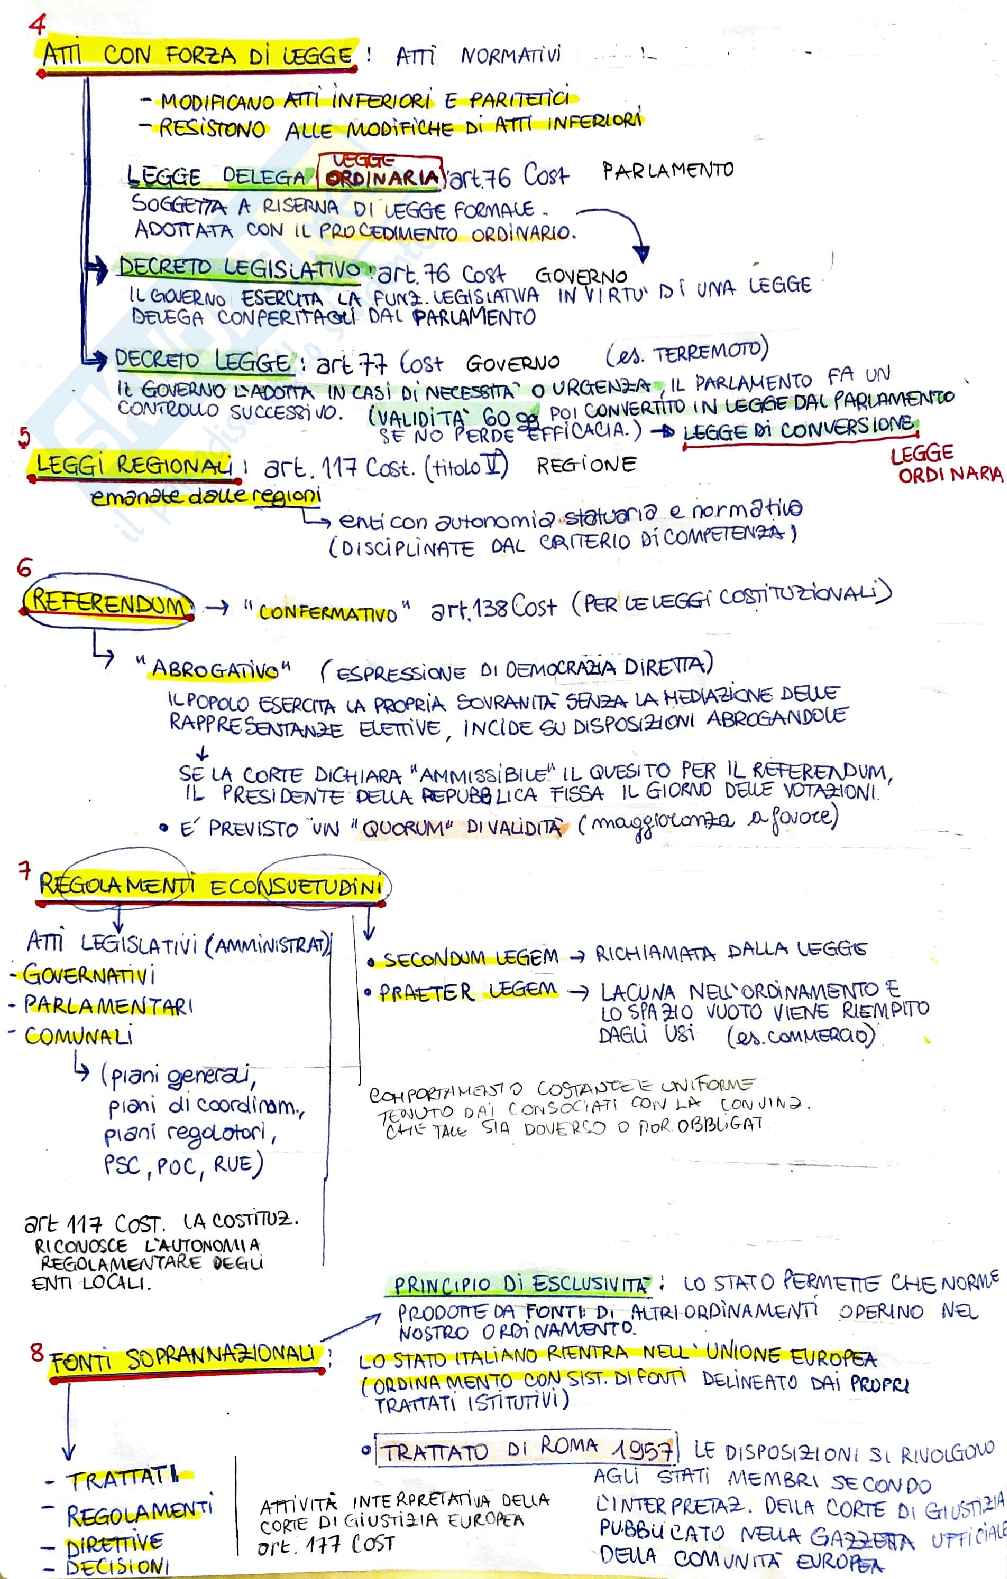 4
ATTI CON FORZA DI LEGGE : ATTI NORMATIVI
- MODIFICANO ATTI INFERIORI E PARITETICI
- RESISTONO ALLE MODIFICHE DI ATTI INFERIORI
LEGGE DELEGA LEGGE ORDINARIA : art.76 Cost PARLAMENTO
SOGGETTA A RISERVA DI LEGGE FORMALE.
ADOTTATA CON IL PROCEDIMENTO ORDINARIO.
DECRETO LEGISLATIVO : art.76 Cost GOVERNO
IL GOVERNO ESERCITA LA FUNZ. LEGISLATIVA IN VIRTU' DI UNA LEGGE
DELEGA CONFERITAGLI DAL PARLAMENTO
DECRETO LEGGE : art 77 Cost GOVERNO (es. TERREMOTO)
IL GOVERNO L'ADOTTA IN CASI DI NECESSITA' O URGENZA, IL PARLAMENTO FA UN
CONTROLLO SUCCESSIVO. (VALIDITA' 60 gg POI CONVERTITO IN LEGGE DAL PARLAMENTO
SE NO PERDE EFFICACIA.) → LEGGE DI CONVERSIONE
LEGGE
ORDINARIA
5
LEGGI REGIONALI : art. 117 Cost. (titolo V) REGIONE
emanate dalle regioni
enti con autonomia statuaria e normativa
(DISCIPLINATE DAL CRITERIO DI COMPETENZA)
6
REFERENDUM → "CONFERMATIVO" art.138 Cost (PER LE LEGGI COSTITUZIONALI)
"ABROGATIVO" (ESPRESSIONE DI DEMOCRAZIA DIRETTA)
IL POPOLO ESERCITA LA PROPRIA SOVRANITA' SENZA LA MEDIAZIONE DELLE
RAPPRESENTANZE ELETTIVE, INCIDE SU DISPOSIZIONI ABROGANDOLE
SE LA CORTE DICHIARA "AMMISSIBILE" IL QUESITO PER IL REFERENDUM,
IL PRESIDENTE DELLA REPUBBLICA FISSA IL GIORNO DELLE VOTAZIONI.
• E' PREVISTO UN "QUORUM" DI VALIDITA' (maggioranza a favore)
7
REGOLAMENTI E CONSUETUDINI
ATTI LEGISLATIVI (AMMINISTRAT)
- GOVERNATIVI
- PARLAMENTARI
- COMUNALI
(piani generali,
piani di coordinam.,
piani regolatori,
PSC, POC, RUE)
art 117 COST. LA COSTITUZ.
RICONOSCE L'AUTONOMIA
REGOLAMENTARE DEGLI
ENTI LOCALI.
• SECONDUM LEGEM → RICHIAMATA DALLA LEGGE
• PRAETER LEGEM → LACUNA NELL'ORDINAMENTO E
LO SPAZIO VUOTO VIENE RIEMPITO
DAGLI USI (es. COMMERCIO)
COMPORTAMENTO COSTANTE E UNIFORME
TENUTO DAI CONSOCIATI CON LA CONVINZ.
CHE TALE SIA DOVEROSO O OBBLIGAT
PRINCIPIO DI ESCLUSIVITA' : LO STATO PERMETTE CHE NORME
PRODOTTE DA FONTI DI ALTRI ORDINAMENTI OPERINO NEL
NOSTRO ORDINAMENTO.
8
FONTI SOPRANNAZIONALI : LO STATO ITALIANO RIENTRA NELL'UNIONE EUROPEA
(ORDINAMENTO CON SIST. DI FONTI DELINEATO DAI PROPRI
TRATTATI ISTITUTIVI)
- TRATTATI
- REGOLAMENTI
- DIRETTIVE
- DECISIONI
ATTIVITA' INTERPRETATIVA DELLA
CORTE DI GIUSTIZIA EUROPEA
art. 177 COST
• TRATTATO DI ROMA 1957 LE DISPOSIZIONI SI RIVOLGONO
AGLI STATI MEMBRI SECONDO
L'INTERPRETAZ. DELLA CORTE DI GIUSTIZIA
PUBBLICATO NELLA GAZZETTA UFFICIALE
DELLA COMUNITA' EUROPEA